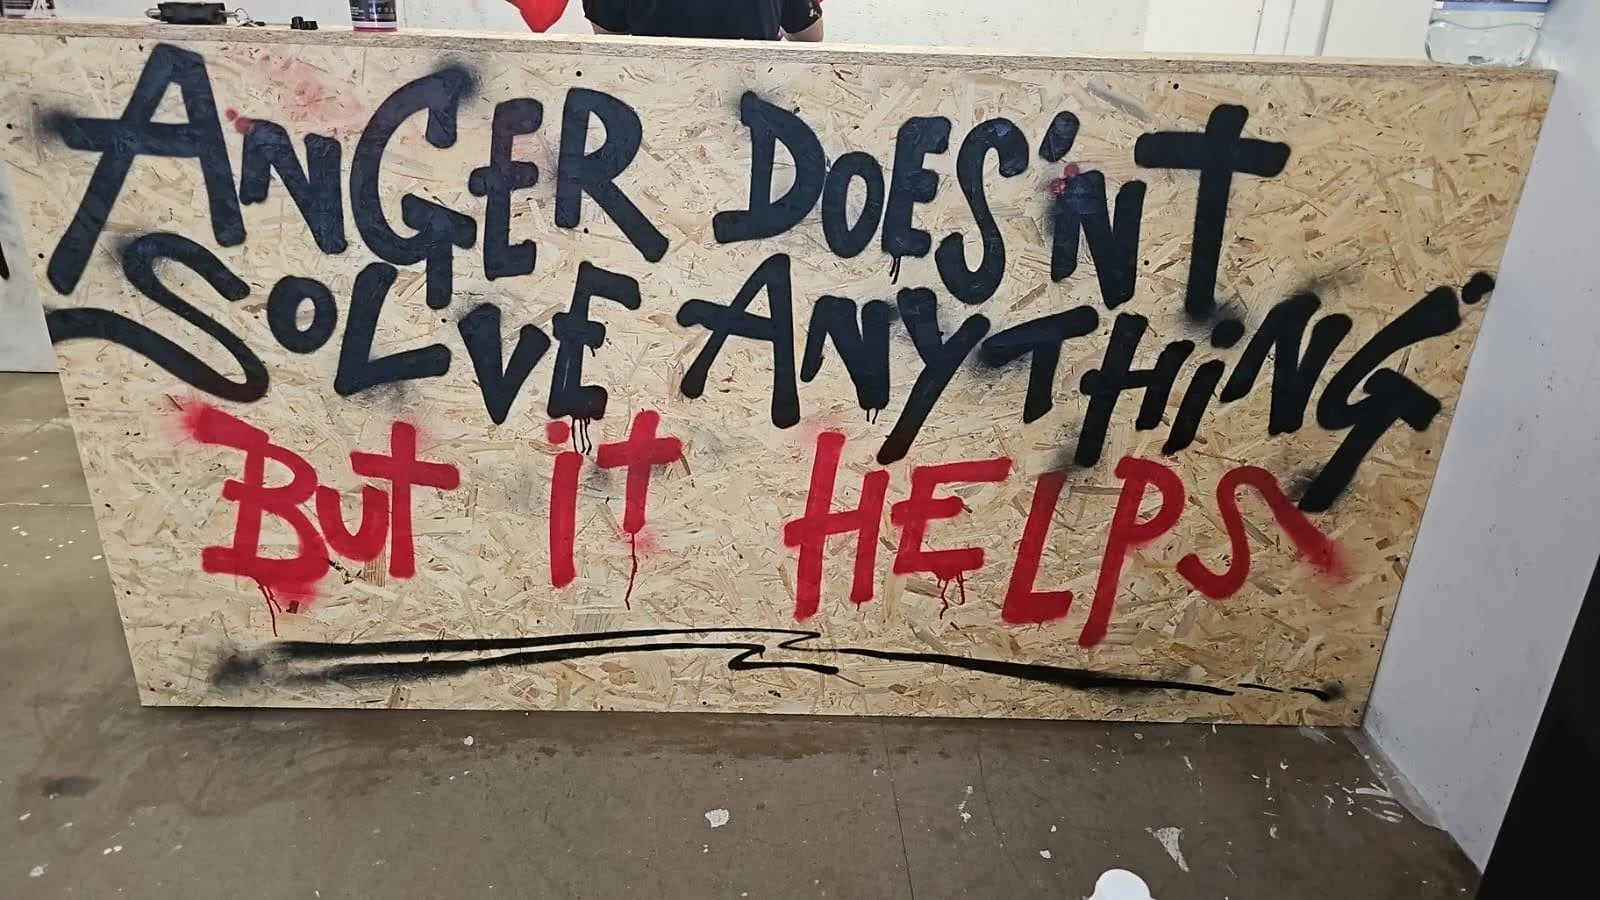 ANGER DOES'NT
SOLVE ANYTHiNG
BUT iT HELPS